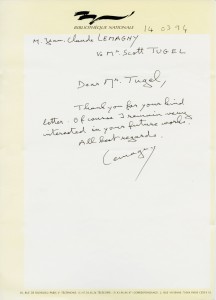 BIBLIOTHÈQUE NATIONALE
14.03.94
M. Jean-Claude LEMAGNY
to Mr Scott TUGEL
Dear Mr. Tugel,
Thank you for your kind
letter. Of course I remain very
interested in your future works.
All best regards.
Lemagny